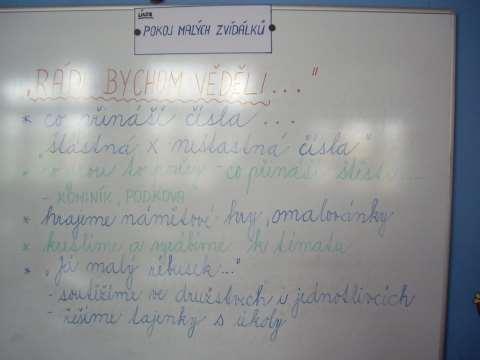 POKOJ MALÝCH ZVÍDÁLKŮ
„RÁDI BYCHOM VĚDĚLI..."
* co přináší čísla ...
„šťastná x nešťastná čísla"
to - co přináší štěstí ...
- KOMINÍK, PODKOVA
* hrajeme námětové hry, omalovánky
* kreslíme a vyrábíme k tématu
* „Já malý rébusek..."
- soutěžíme ve družstvech i jednotlivcích
- řešíme tajenky s úkoly